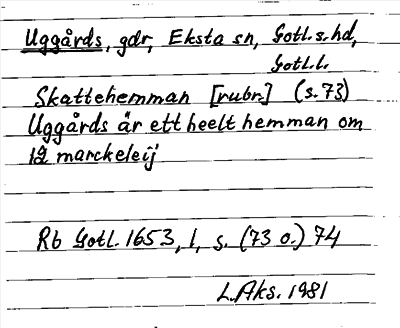 Uggårds, gdr, Eksta sn, Gotl. s. hd,
Gotl. l.
Skattehemman [rubr.] (s. 73)
Uggårds är ett heelt hemman om
12 marckeleij
Rb Gotl. 1653, 1, s. (73 o.) 74
L. Aks. 1981